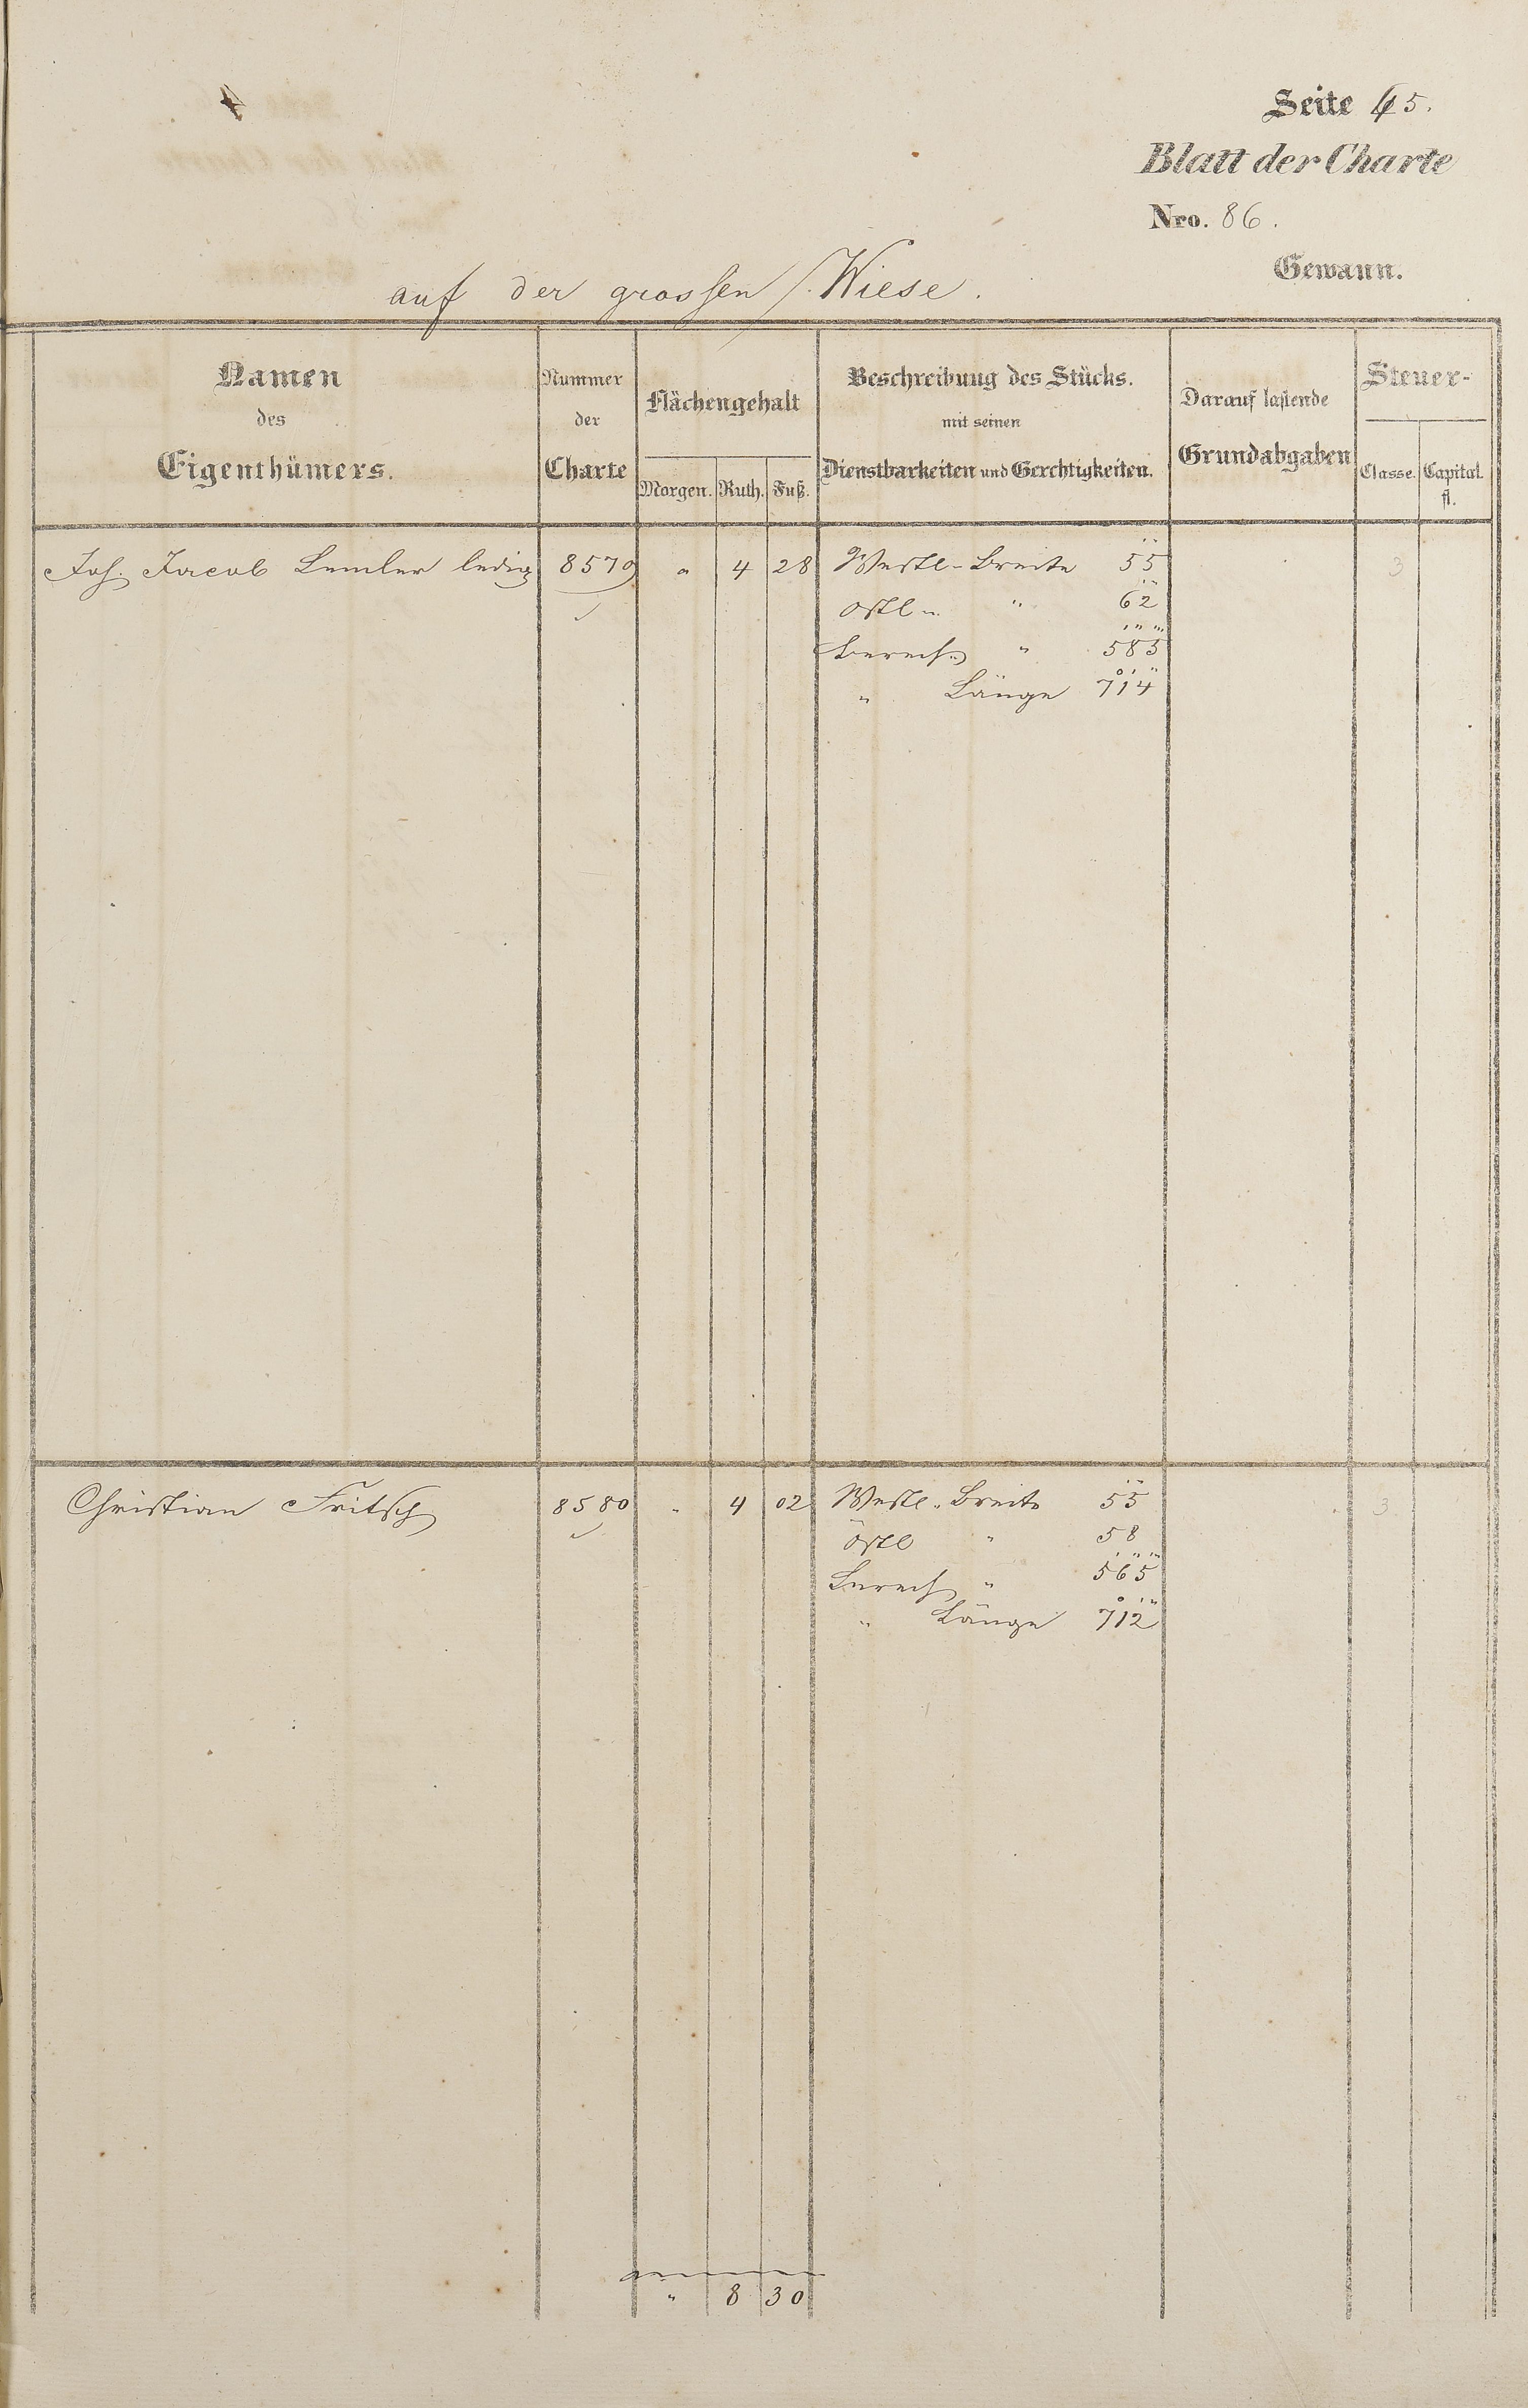 Seite 45.
Blatt der Charte
Nro. 86.
Gewann.
auf der grossen Wiese.
Namen des Eigenthümers.
Nummer der Charte
Flächengehalt
Morgen. Ruth. Fuß.
Beschreibung des Stücks. mit seinen Dienstbarkeiten und Gerechtigkeiten.
Darauf lastende Grundabgaben
Steuer-
Classe. Capital. fl.
Joh. Jacob Lemler ledig 8579 " 4 28 Westl. Breite 55 3
östl. " 62
berech. " 585
" Länge 714
Christian Fritsch 8580 " 4 02 Westl. Breite 55 3
östl " 58
berech " 565
" Länge 712
" 8 30